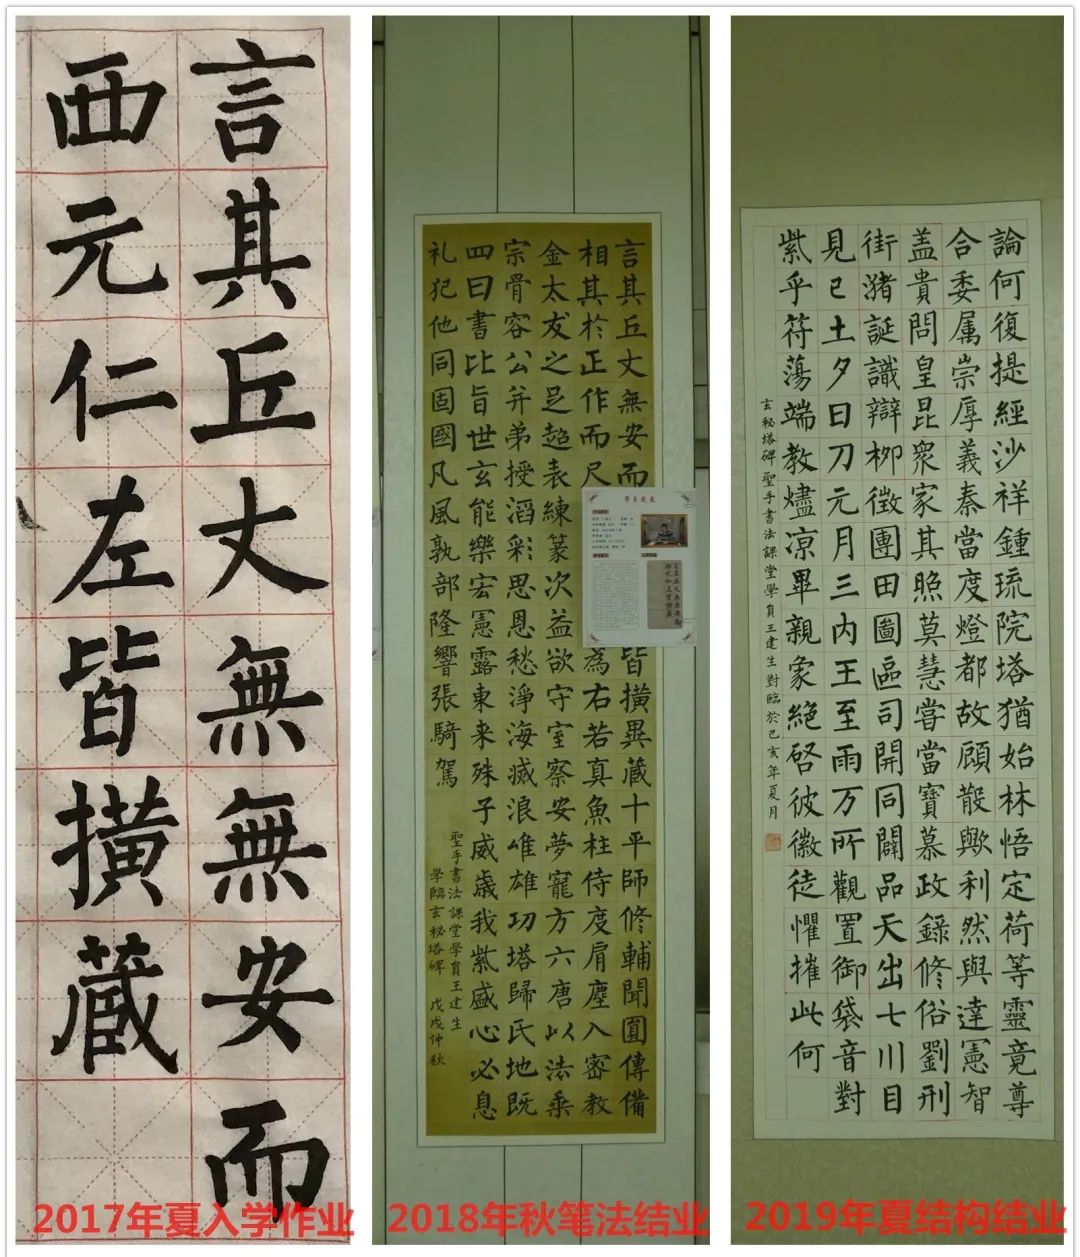 言其丘丈無無安而
西元仁左皆撗蔵
2017年夏入学作业
言其丘丈無安而
皆撗異蔵十平師修輔聞圓傳備
相其於正作而尺
為右若真魚柱侍度肩塵入密教
金太友之足超表練篆次益欲守室察安夢寵方六唐以法乘
宗骨容公并弟授滔彩思恩愁淨海滅浪雄雄功塔歸氏地既
四曰書比旨世玄能樂宏憲露東来殊子威歳我紫盛心必息
礼犯他同固國凡風孰部隆響張騎駕
聖手書法課堂學員王建生
學臨玄秘塔碑 戊戌仲秋
2018年秋笔法结业
論何復提經沙祥鍾琉院塔猶始林悟定荷等靈竟尊
合委属崇厚義秦當度燈都故顧散歟利然與達憲智
盖貴問皇昆衆家其照莫慧嘗當寶慕政錄修俗劉刑
街潴誕識辯栁徵團田圖區司開同闢品天出七川目
見已土夕日刀元月三内王至雨万所觀置御袋音對
紫乎符蕩端教燼凉畢親象絶啓彼徽徒懼摧此何
玄秘塔碑聖手書法課堂學員王建生對臨於己亥年夏月
2019年夏结构结业